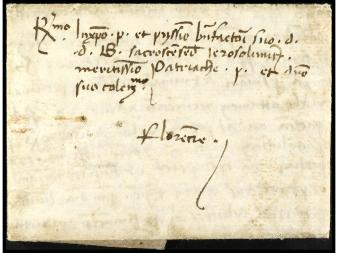 R.mo In xpo. p. et pijssio bnfactori suo. d.
d. B. sacrosce sed ierosolimit.
meritissio Patriache. p. et dno
suo colen.mo
Florentie.